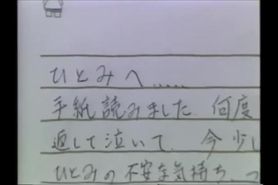 ひとみへ.....
手紙読みました 何度
返して泣いて、今少し
ひとみの不安な気持ち、つ